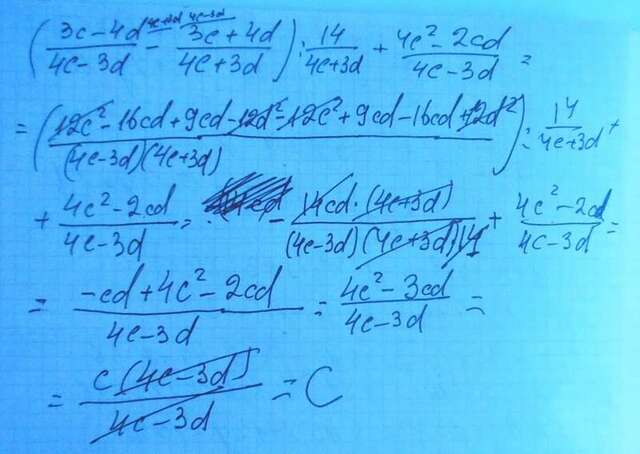 ((3c-4d)/(4c-3d) ^(4c+3d) - (3c+4d)/(4c+3d) ^(4c-3d)) : 14/(4c+3d) + (4c²-2cd)/(4c-3d) =
= ((12c²-16cd+9cd-12d²-12c²+9cd-16cd+12d²)/((4c-3d)(4c+3d))) : 14/(4c+3d) +
+ (4c²-2cd)/(4c-3d) = - (14cd·(4c+3d))/((4c-3d)(4c+3d)14) + (4c²-2cd)/(4c-3d) =
= (-cd+4c²-2cd)/(4c-3d) = (4c²-3cd)/(4c-3d) =
= (c(4c-3d))/(4c-3d) = C